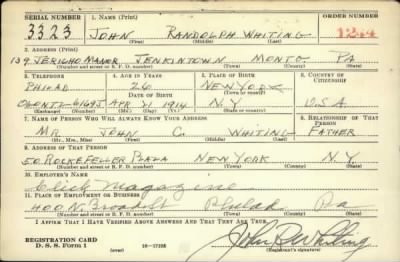 SERIAL NUMBER 1. NAME (Print) ORDER NUMBER
3323 JOHN RANDOLPH WHITING
(First) (Middle) (Last)
2. ADDRESS (Print)
139 JERICHO MANOR JENKINTOWN MONTG. PA
(Number and street or R. F. D. number) (Town) (County) (State)
3. TELEPHONE 4. AGE IN YEARS 5. PLACE OF BIRTH 6. COUNTRY OF CITIZENSHIP
PHILAD 26 NEW YORK
DATE OF BIRTH (Town or county)
OGONTZ 6169J APR 21 1914 N.Y. U.S.A
(Exchange) (Number) (Mo.) (Day) (Yr.) (State or country)
7. NAME OF PERSON WHO WILL ALWAYS KNOW YOUR ADDRESS 8. RELATIONSHIP OF THAT PERSON
MR JOHN C. WHITING FATHER
(Mr., Mrs., Miss) (First) (Middle) (Last)
9. ADDRESS OF THAT PERSON
50 ROCKEFELLER PLAZA NEW YORK N.Y.
(Number and street or R. F. D. number) (Town) (County) (State)
10. EMPLOYER'S NAME
Click Magazine
11. PLACE OF EMPLOYMENT OR BUSINESS
400 N. Broad St Philad Pa
(Number and street or R. F. D. number) (Town) (County) (State)
I AFFIRM THAT I HAVE VERIFIED ABOVE ANSWERS AND THAT THEY ARE TRUE.
REGISTRATION CARD John R Whiting
D. S. S. Form 1 (over) (Registrant's signature)